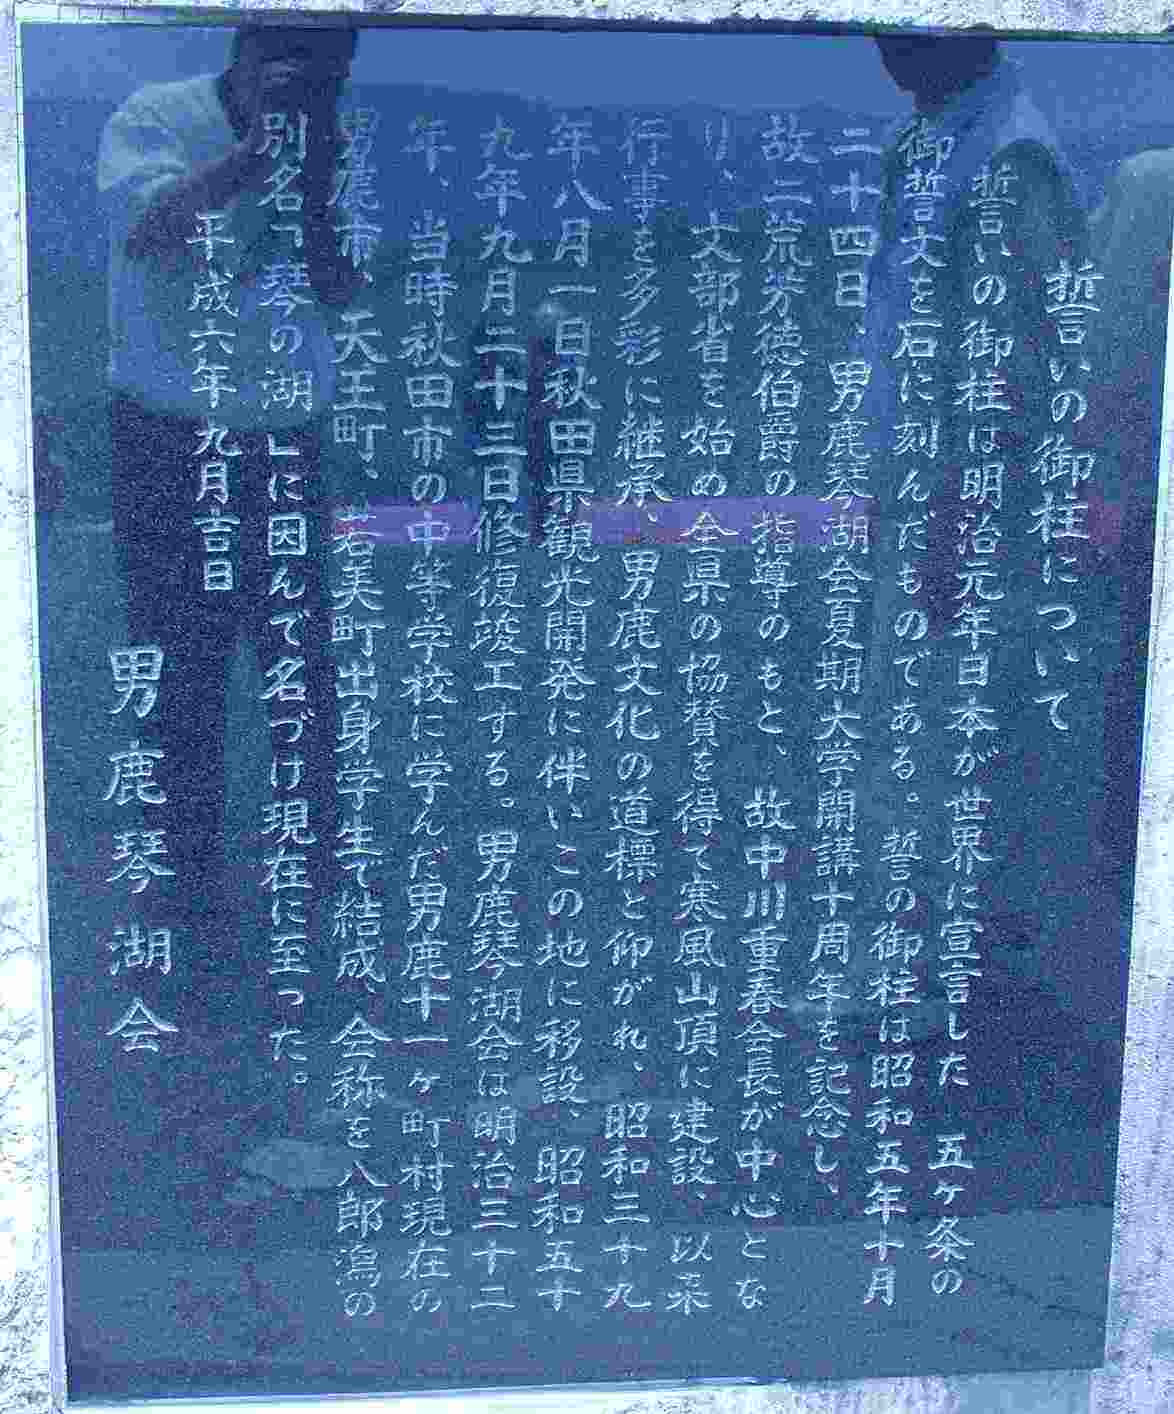 誓いの御柱について
誓いの御柱は明治元年日本が世界に宣言した五ヶ条の
御誓文を石に刻んだものである。誓の御柱は昭和五年十月
二十四日、男鹿琴湖会夏期大学開講十周年を記念し、
故二荒芳徳伯爵の指導のもと、故中川重春会長が中心とな
り、文部省を始め全県の協賛を得て寒風山頂に建設、以来
行事を多彩に継承、男鹿文化の道標と仰がれ、昭和三十九
年八月一日秋田県観光開発に伴いこの地に移設、昭和五十
九年九月二十三日修復竣工する。男鹿琴湖会は明治三十二
年、当時秋田市の中等学校に学んだ男鹿十一ヶ町村現在の
男鹿市、天王町、若美町出身学生で結成、会称を八郎潟の
別名「琴の湖」に因んで名づけ現在に至った。
平成六年九月吉日
男鹿琴湖会